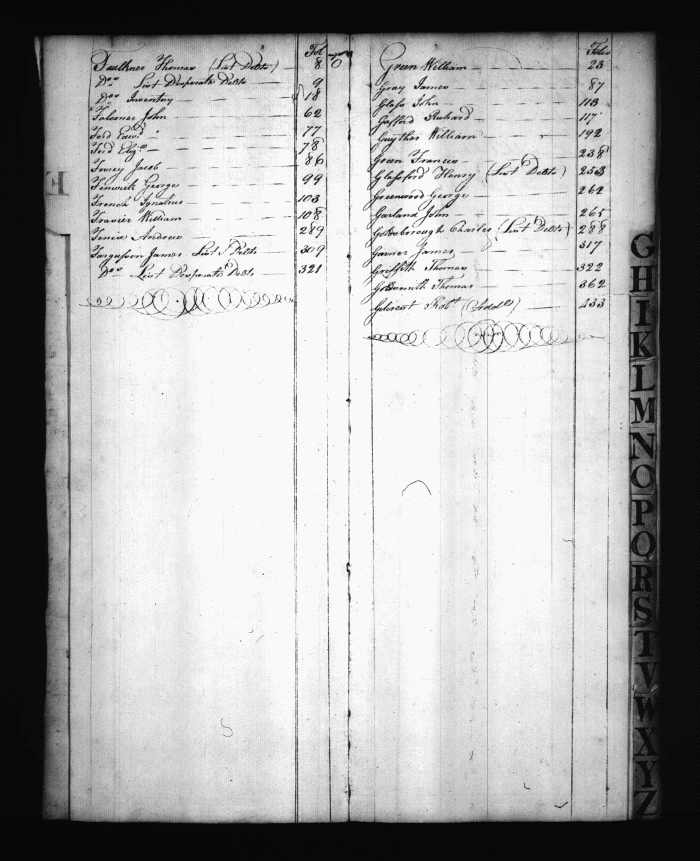 Fol
Faulkner Thomas (List Debts) 8
Do List Desperate Debts 9
Do Inventory 18
Falconer John 62
Ford Edwd 77
Ford Eliza 78
Jacob 86
Fenwick George 99
French Ignatius 103
Fravier William 108
Fenix Andrew 289
Ferguson James List D Debts 309
Do List Desperate Debts 321
Folio
Green William 23
Gray James 87
Glass John 113
Gafford Richard 117
Guyther William 192
Green Francis 238
Glassford Henry (List Debts) 253
Greenwood George 262
Garland John 265
Goldsborough Charles (List Debts) 288
Garner James 317
Griffith Thomas 322
Goldsmith Thomas 362
Robt (Addl) 433
F
G
H
I
K
L
M
N
O
P
Q
R
S
T
V
W
X
Y
Z